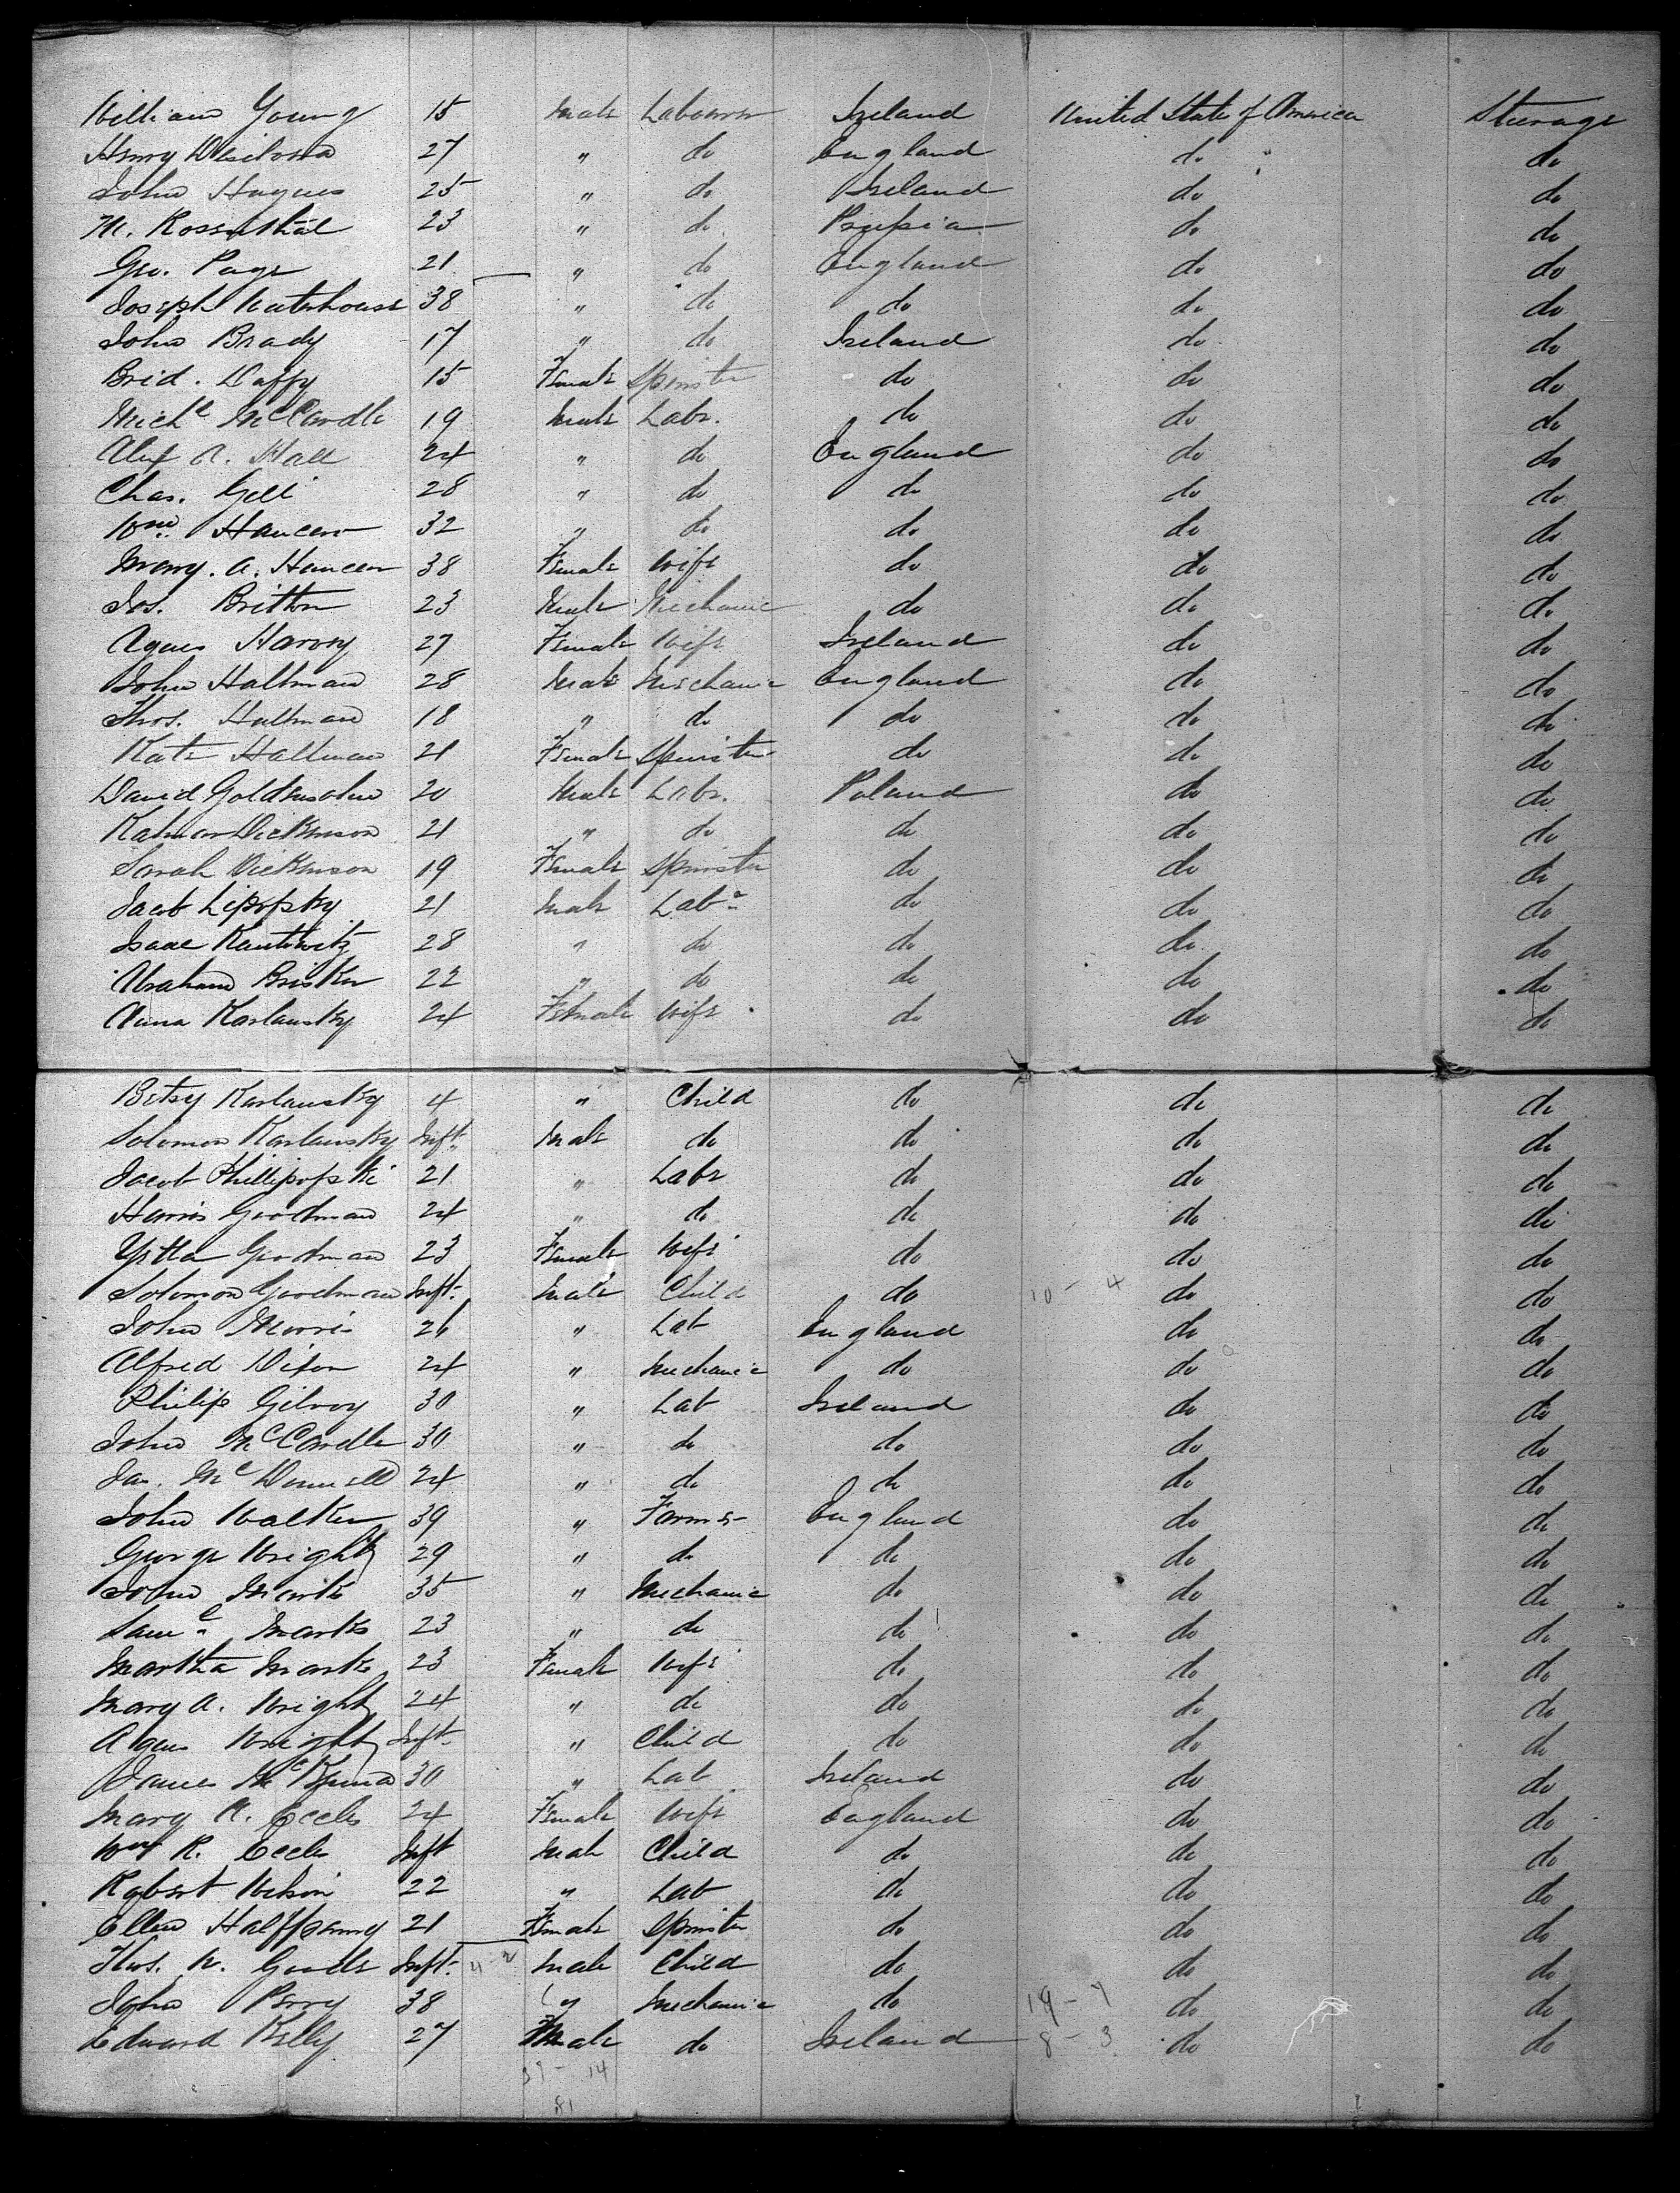 William Young 15 Male Labourer Ireland United State of America Steerage
Henry 27 " do England do do
John Hagues 25 " do Ireland do do
M. Rossenthal 23 " do Prussia do do
Geo. Page 21 " do England do do
Joseph Waterhouse 38 " do do do do
John Brady 17 " do Ireland do do
Brid. Daffy 15 Female Spinster do do do
Michl McCardle 19 Male Labr. do do do
Alex A. Hall 24 " do England do do
Chas. Gell 28 " do do do do
Wm. 32 " do do do do
Mary. A. 38 Female Wife do do do
Jos. Britton 23 Male Mechanic do do do
Agnes Harvey 27 Female Wife Ireland do do
John Hallman 28 Male Mechanic England do do
Thos. Hallman 18 " do do do do
Kate Hallman 21 Female Spinster do do do
David Goldensohn 20 Male Labr. Poland do do
Kalman Dickenson 21 " do do do do
Sarah Dickenson 19 Female Spinster do do do
Jacob Lipofsky 21 Male Labr do do do
Isaac Kantrwitz 28 " do do do do
Abraham Brisker 22 " do do do do
Anna Karlansky 24 Female Wife do do do
Betsy Karlansky 4 " Child do do do
Solomon Karlansky Inft. Male do do do do
Jacob Phillipofski 21 " Labr do do do
Harris Goodman 24 " do do do do
Yetta Goodman 23 Female Wife do do do
Solomon Goodman Inft. Male Child do 10 - 4 do do
John Morris 26 " Lab England do do
Alfred Dixon 24 " Mechanic do do do
Philip Gilroy 30 " Lab Ireland do do
John McCardle 30 " do do do do
Jas. McDonnell 24 " do do do do
John Walker 39 " Farmer England do do
George Wright 29 " do do do do
John Marks 35 " Mechanic do do do
Saml Marks 23 " do do do do
Martha Marks 23 Female Wife do do do
Mary A. Wright 24 " do do do do
Agnes Wright Inft. " Child do do do
James McKenna 30 " Lab Ireland do do
Mary A. Eccles 24 Female Wife England do do
Wm R. Eccles Inft Male Child do do do
Robert Nelson 22 " Lab do do do
Ellen Halfpenny 21 Female Spinster do do do
Thos. W. Goode Inft. Male Child do do do
John Perry 38 " Mechanic do 19 - 7 do do
Edward Kelly 27 Male do Ireland 8 - 3 do do
39 - 14
81